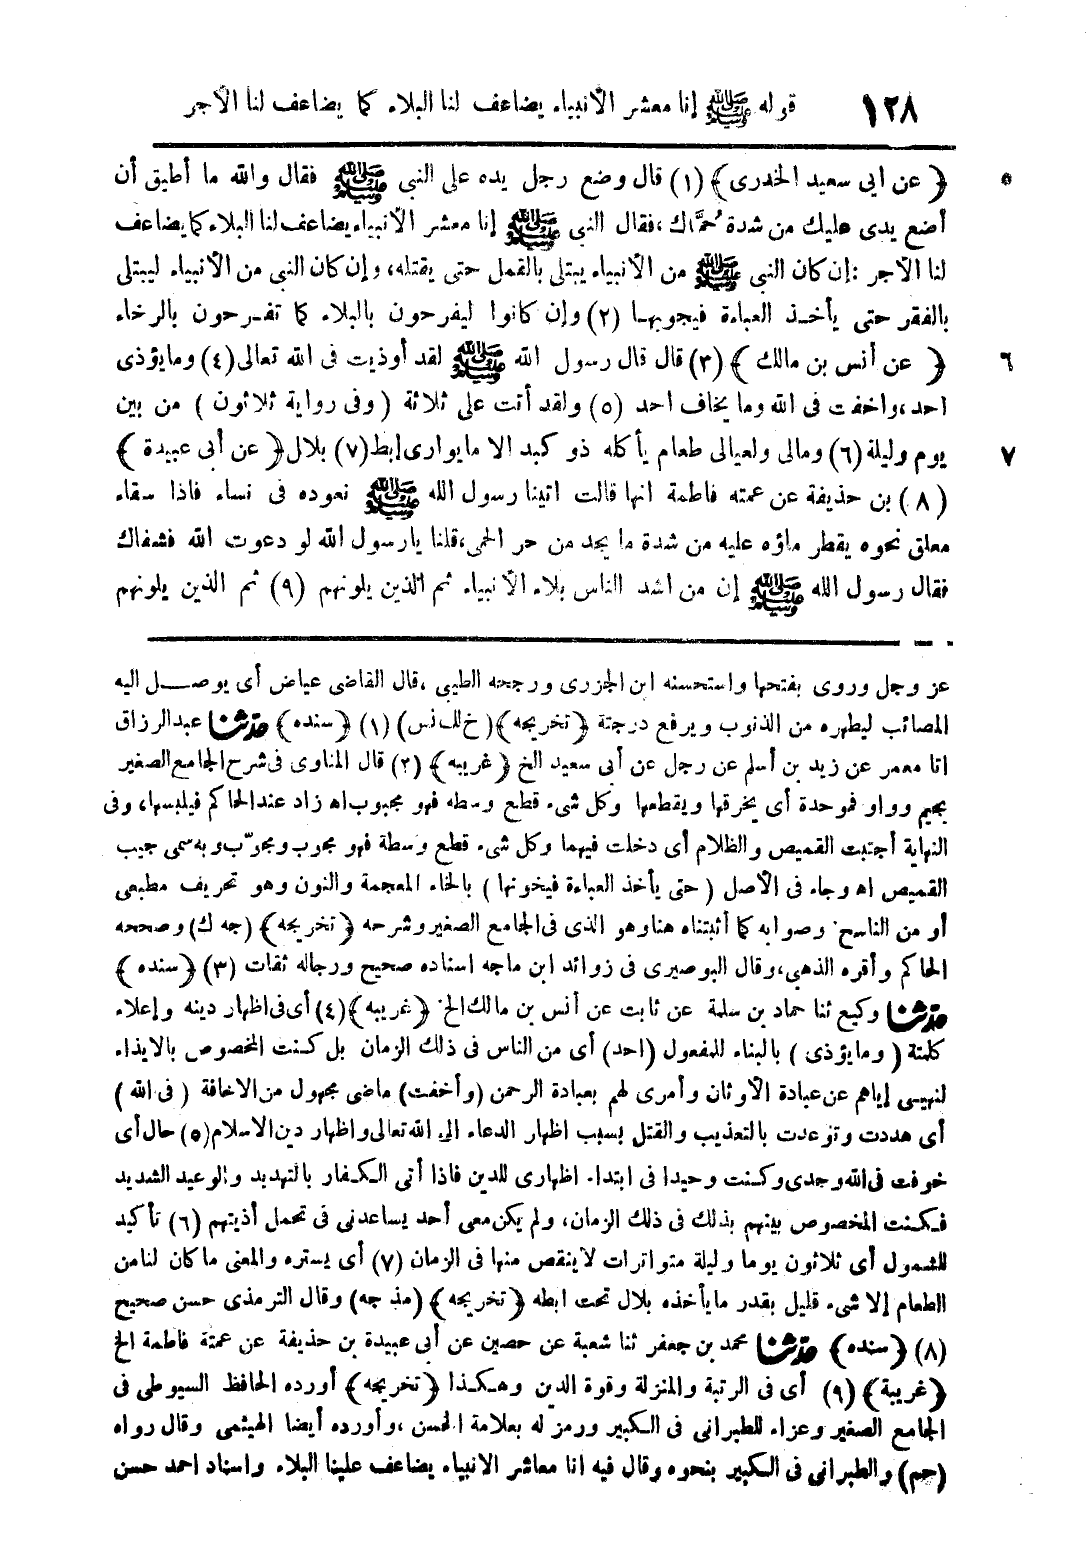 ١٢٨ قوله ﷺ إنا معشر الأنبياء يضاعف لنا البلاء كما يضاعف لنا الأجر
٥ ﴿ عن أبى سعيد الخدرى ﴾ (١) قال وضع رجل يده على النبى ﷺ فقال والله ما أطيق أن
أضع يدى عليك من شدة حُمَّاك ،فقال النبى ﷺ إنا معشر الأنبياء يضاعف لنا البلاء كما يضاعف
لنا الأجر :إن كان النبى ﷺ من الأنبياء يبتلى بالقمل حتى يقتله، وإن كان النبى من الأنبياء ليبتلى
بالفقر حتى يأخذ العباءة فيجوبها (٢) وإن كانوا ليفرحون بالبلاء كما تفرحون بالرخاء
٦ ﴿ عن أنس بن مالك ﴾ (٣) قال قال رسول الله ﷺ لقد أوذيت فى الله تعالى (٤) وما يؤذى
احد،واخفت فى الله وما يخاف احد (٥) ولقد أتت على ثلاثة ( وفى رواية ثلاثون ) من بين
٧ يوم وليلة (٦) ومالى ولعيالى طعام يأكله ذو كبد الا ما يوارى إبط (٧) بلال ﴿ عن أبى عبيدة ﴾
(٨) بن حذيفة عن عمته فاطمة انها قالت اتينا رسول الله ﷺ نعوده فى نساء فاذا سقاء
معلق نحوه يقطر ماؤه عليه من شدة ما يجد من حر الحمى،قلنا يا رسول الله لو دعوت الله فشفاك
فقال رسول الله ﷺ إن من اشد الناس بلاء الأنبياء ثم الذين يلونهم (٩) ثم الذين يلونهم
عز وجل وروى بفتحها واستحسنه ابن الجزرى ورجحه الطيبى ،قال القاضى عياض أى يوصل اليه
المصائب ليطهره من الذنوب ويرفع درجتة ﴿ تخريجه ﴾ ( خ لك نس) (١) ﴿ سنده ﴾ حدثنا عبد الرزاق
انا معمر عن زيد بن أسلم عن رجل عن أبى سعيد الخ ﴿ غريبه ﴾ (٢) قال المناوى فى شرح الجامع الصغير
بجيم وواو فموحدة أى يخرقها ويقطعها وكل شىء قطع وسطه فهو مجبوب اه زاد عند الحاكم فيلبسها، وفى
النهاية أجتبت القميص والظلام أى دخلت فيهما وكل شىء قطع وسطة فهو مجوب ومجوّب وبه سمى جيب
القميص اه وجاء فى الأصل ( حتى يأخذ العباءة فيخونها ) بالخاء المعجمة والنون وهو تحريف مطبعى
أو من الناسخ وصوابه كما أثبتناه هنا وهو الذى فى الجامع الصغير وشرحه ﴿ تخريجه ﴾ (جه ك) وصححه
الحاكم وأقره الذهبى،وقال البوصيرى فى زوائد ابن ماجه اسناده صحيح ورجاله ثقات (٣) ﴿ سنده ﴾
حدثنا وكيع ثنا حماد بن سلمة عن ثابت عن أنس بن مالك الخ ﴿ غريبه ﴾ (٤) أى فى اظهار دينه وإعلاء
كلمتة ( وما يؤذى ) بالبناء للمفعول (احد) أى من الناس فى ذلك الزمان بل كنت المخصوص بالايذاء
لنهيى إياهم عن عبادة الأوثان وأمرى لهم بعبادة الرحمن (وأخفت) ماضى مجهول من الاخافة ( فى الله )
أى هددت وتوعدت بالتعذيب والقتل بسبب اظهار الدعاء الى الله تعالى واظهار دين الاسلام (٥) حال أى
خوفت فى الله وحدى وكنت وحيدا فى ابتداء اظهارى للدين فاذا أتى الكفار بالتهديد والوعيد الشديد
فكنت المخصوص بينهم بذلك فى ذلك الزمان، ولم يكن معى أحد يساعدنى فى تحمل أذيتهم (٦) تأكيد
للشمول أى ثلاثون يوما وليلة متواترات لا ينقص منها فى الزمان (٧) أى يستره والمعنى ما كان لنا من
الطعام إلا شىء قليل بقدر ما يأخذه بلال تحت ابطه ﴿ تخريجه ﴾ (مذ جه) وقال الترمذى حسن صحيح
(٨) ﴿ سنده ﴾ حدثنا محمد بن جعفر ثنا شعبة عن حصين عن أبى عبيدة بن حذيفة عن عمتة فاطمة الخ
﴿ غريبة ﴾ (٩) أى فى الرتبة والمنزلة وقوة الدين وهكذا ﴿ تخريجه ﴾ أورده الحافظ السيوطى فى
الجامع الصغير وعزاه للطبرانى فى الكبير ورمز له بعلامة الحسن ،وأورده أيضا الهيثمى وقال رواه
(حم) والطبرانى فى الكبير بنحوه وقال فيه انا معاشر الانبياء يضاعف علينا البلاء واسناد احمد حسن